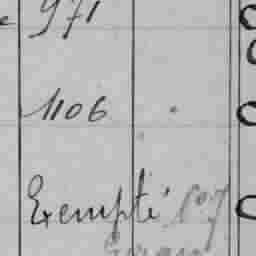 971
1106
Exempté n° 7